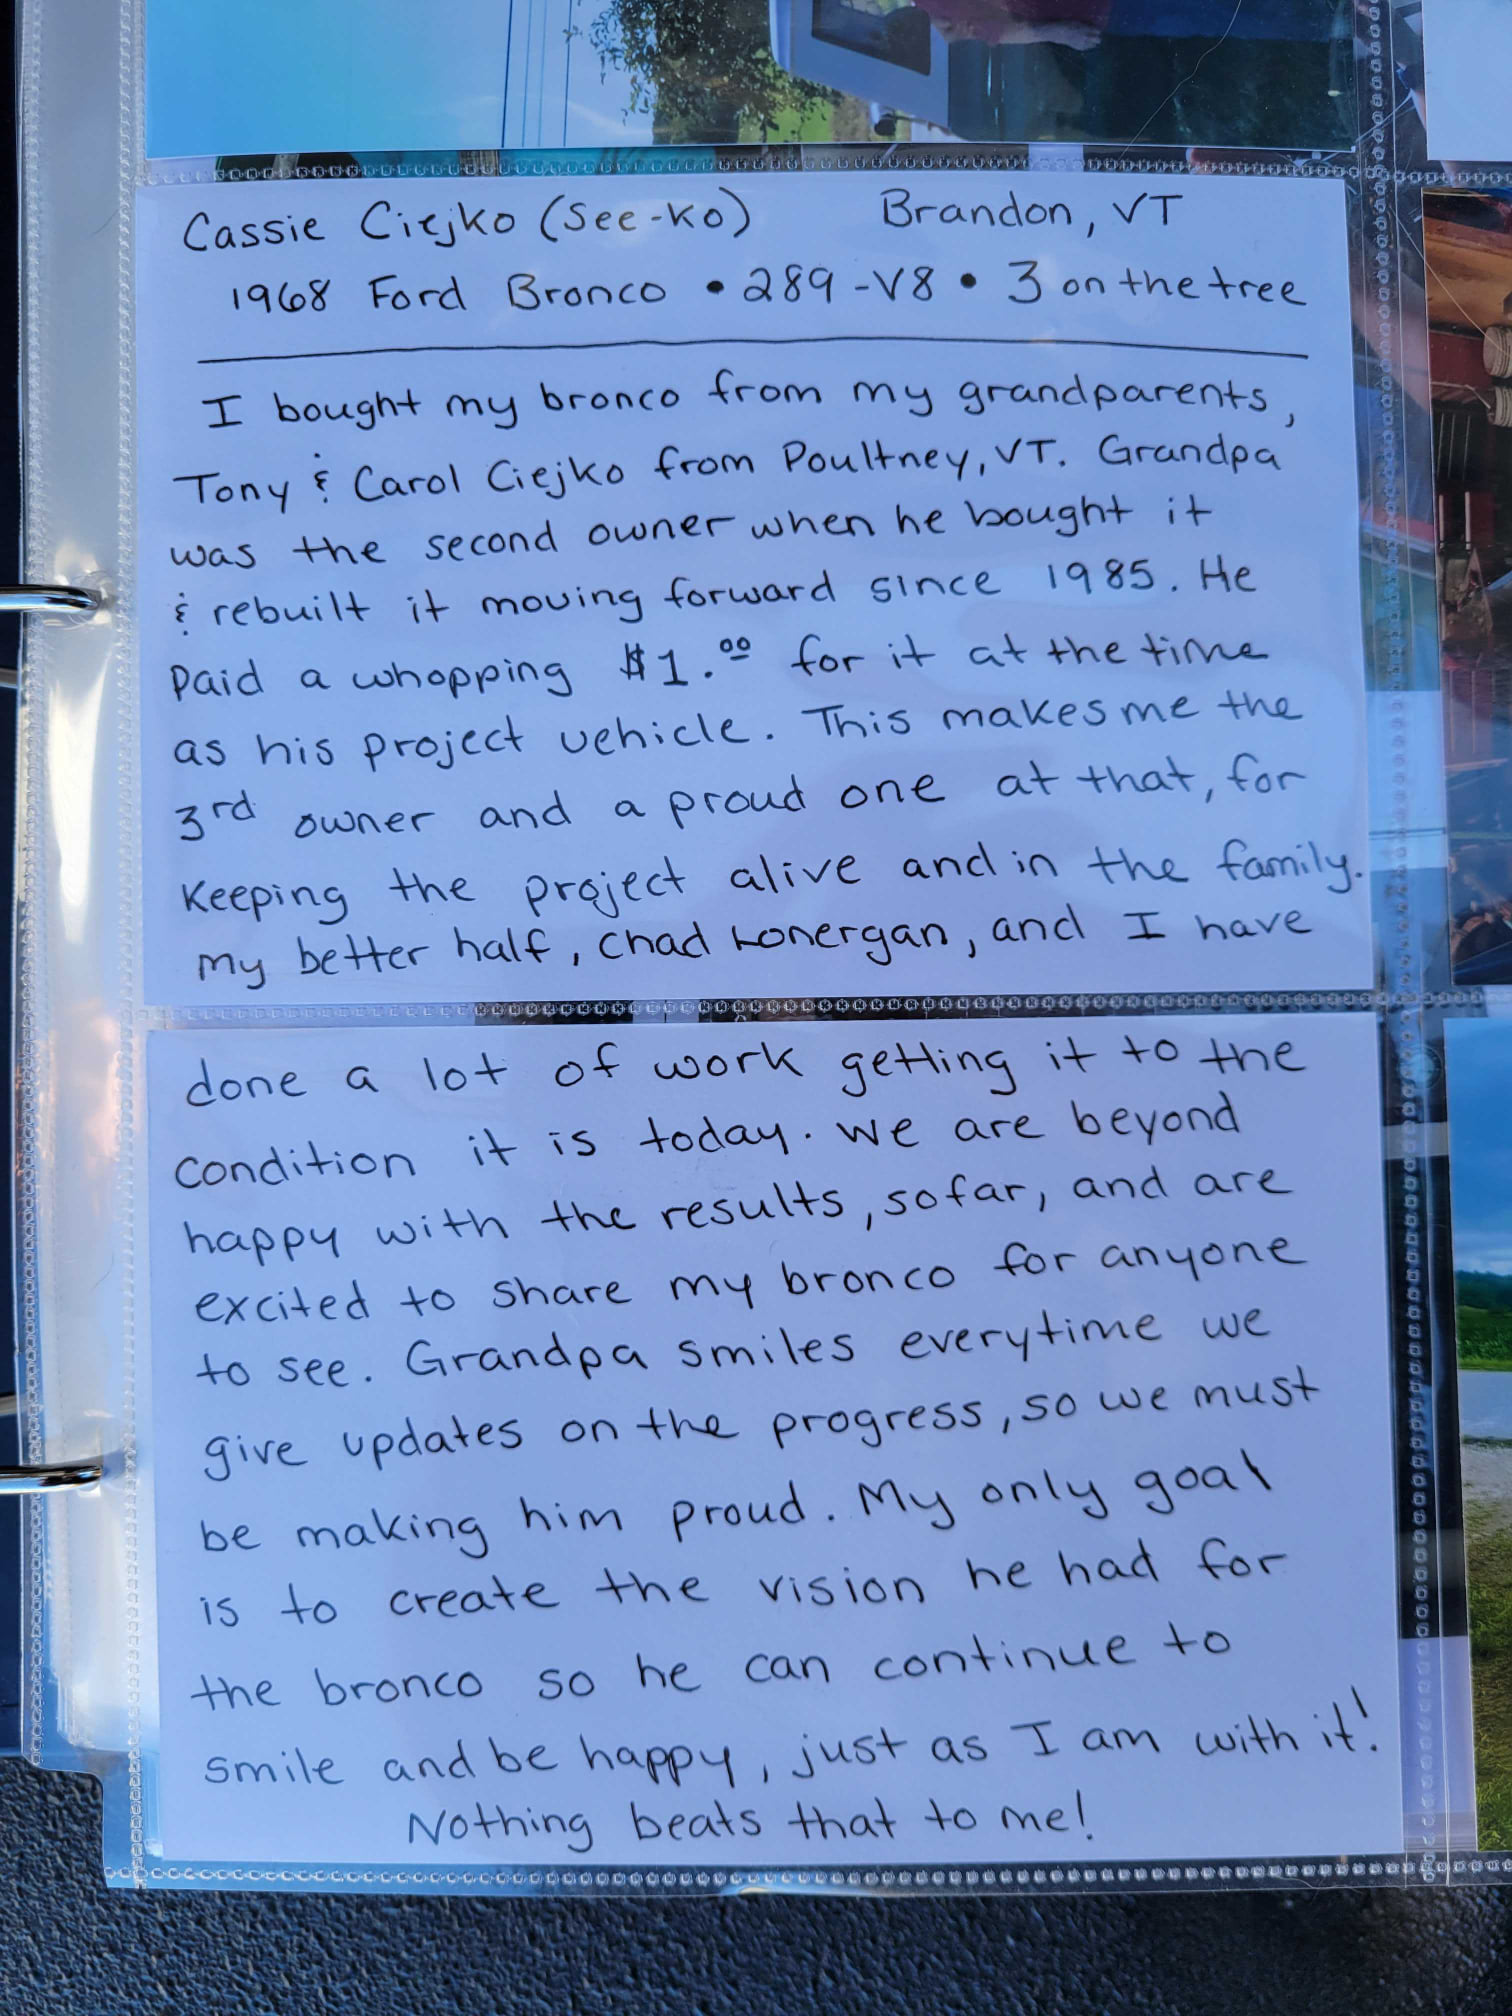 Cassie Ciejko (See-Ko) Brandon, VT
1968 Ford Bronco • 289-V8 • 3 on the tree
I bought my bronco from my grandparents,
Tony & Carol Ciejko from Poultney, VT. Grandpa
was the second owner when he bought it
& rebuilt it moving forward since 1985. He
Paid a whopping $1.00 for it at the time
as his project vehicle. This makes me the
3rd owner and a proud one at that, for
Keeping the project alive and in the family.
My better half, Chad Lonergan, and I have
done a lot of work getting it to the
condition it is today. We are beyond
happy with the results, so far, and are
excited to share my bronco for anyone
to see. Grandpa smiles everytime we
give updates on the progress, so we must
be making him proud. My only goal
is to create the vision he had for
the bronco so he can continue to
smile and be happy, just as I am with it!
Nothing beats that to me!